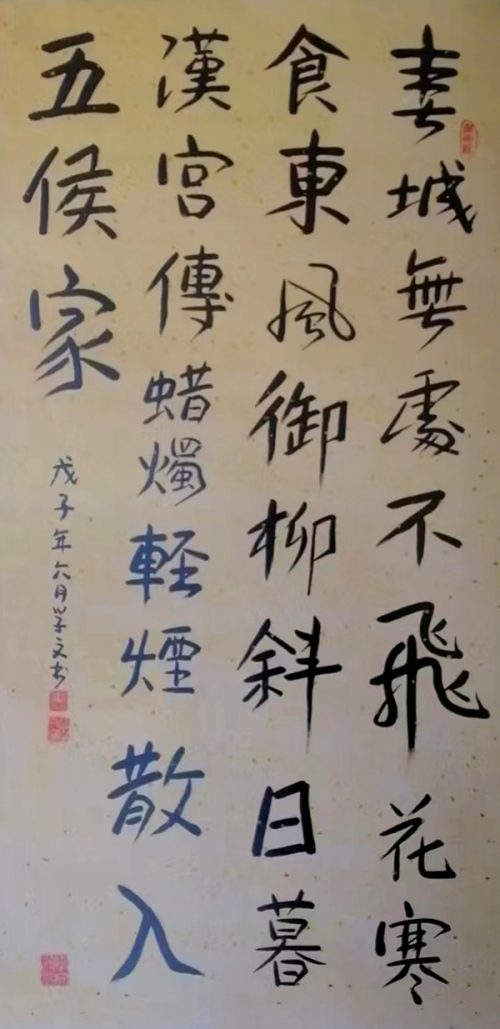 春城無處不飛花寒
食東風御柳斜日暮
漢宮傳蜡燭輕煙散入
五侯家
戊子年六月学文书